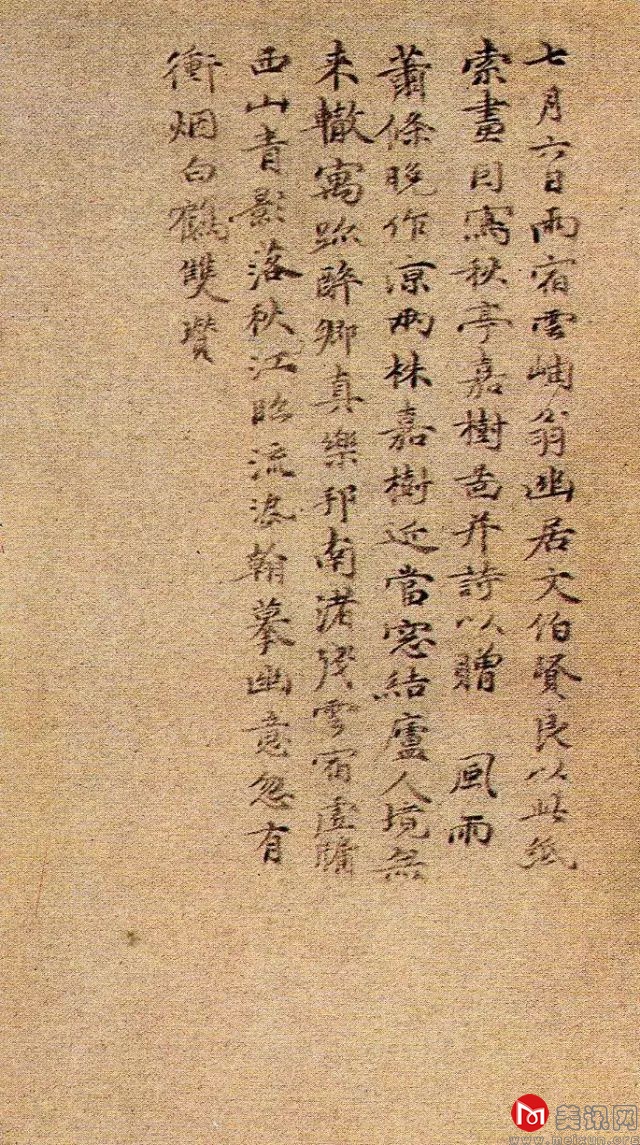 七月六日雨宿雲岫翁幽居文伯賢良以此紙
索畫因寫秋亭嘉樹啚并詩以贈　風雨
蕭條晚作涼兩株嘉樹近當窓結廬人境無
来轍寓跡醉鄉真樂邦南渚殘雲宿虛牖
西山青影落秋江臨流染翰摹幽意忽有
衝烟白鶴雙瓚
美讯网
www.meixun.com